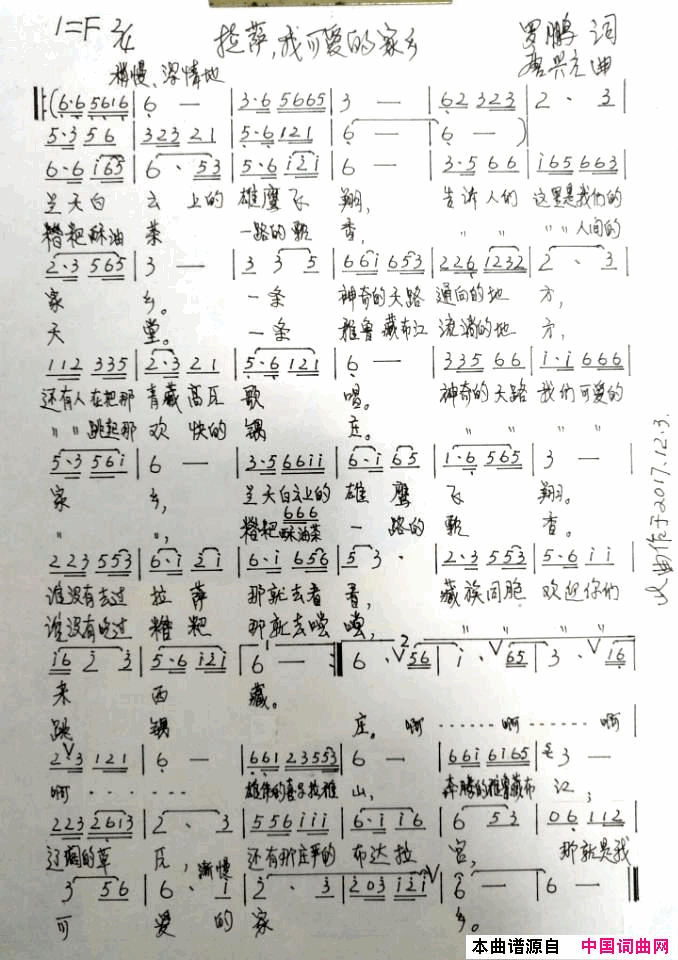 1=F 2/4 拉萨,我可爱的家乡 罗鹏 词
稍慢、深情地 唐兴元 曲
(6·6 5616 | 6 — | 3·6 5665 | 3 — | 62 323 | 2 · 3 |
5·3 56 | 323 21 | 5·6 121 | 6 — | 6 — )
6·6 i65 | 6 · 53 | 5·6 i2i | 6 — | 3·5 66 | i65 663 |
兰天白 云 上的 雄鹰 飞 翔, 告诉人们 这里是我们的
糌粑酥油 茶 一路的歌 香, 〃 〃 〃〃人间的
2·3 565 | 3 — | 3 3 5 | 66i 653 | 226 1232 | 2 · 3 |
家 乡。 一条 神奇的天路 通向的地 方,
天 堂。 一条 雅鲁藏布江 流淌的地 方,
112 335 | 2·3 21 | 5·6 121 | 6 — | 335 66 | i·i 666 |
还有人在把那 青藏高瓦 歌 唱。 神奇的天路 我们可爱的
〃〃跳起那 欢 快的 锅 庄。 〃 〃 〃 〃
5·3 56i | 6 — | 3·5 66ii | 6·i 65 | 1·6 565 | 3 — |
家 乡, 兰天白云上的 雄 鹰 飞 翔。
666
〃 〃, 糌粑酥油茶 一 路的 歌 香。
223 553 | 6·i 2i | 6·i 656 | 5 3 · | 2·3 553 | 5·6 ii |
谁没有去过 拉 萨 那就去看 看, 藏族同胞 欢迎你们
谁没有吃过 糌 粑 那就去尝 尝, 〃 〃 〃 〃
i6 2 3 | 5·6 i2i | 6 — :‖ 6 · V56 | i · V65 | 3 · Vi6 |
来 西 藏。
跳 锅 庄。 啊 …… 啊 …… 啊
2V3 121 | 6 — | 661 23553 | 6 — | 66i 6i65 | 3 — |
啊 …… 雄伟的喜马拉雅 山, 奔腾的雅鲁藏布 江;
223 2613 | 2 · 3 | 556 iii | 6·i i6 | 6 53 | 06 112 |
辽阔的草 瓦, 渐慢 还有那庄严的 布达拉 宫, 那就是我
3 56 | 6 · i | 2 · 3 | 203 i2i V | 6 — | 6 — ‖
可 爱的家 乡。
从曲作于2017.12.3.
本曲谱源自 中国词曲网